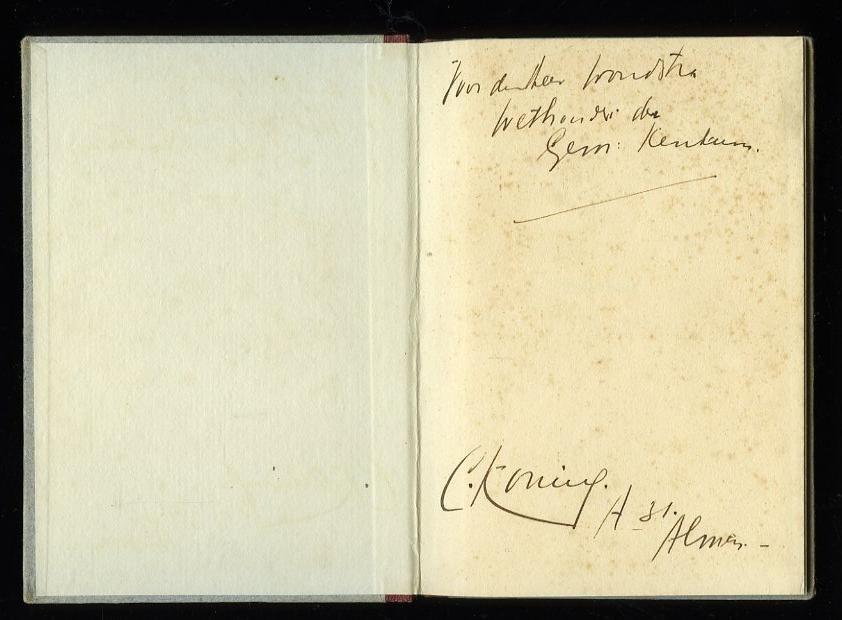 Voor den Heer Woudstra
Wethouder der
Gem:
C. Koning.
A 31.
Almen. –